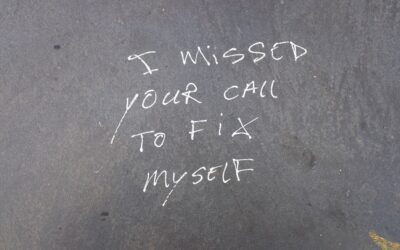 I MISSED
YOUR CALL
TO FIX
MYSELF